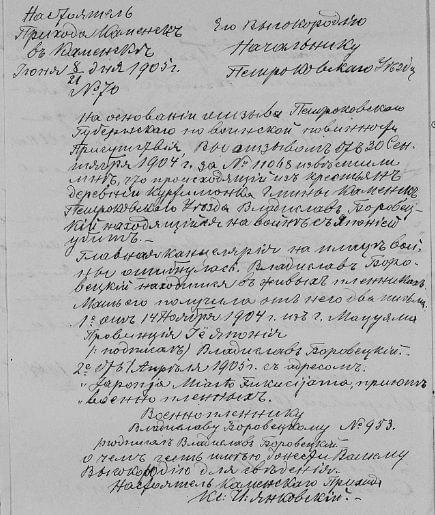 Настоятель
Прихода Каменскъ
въ Каменскѣ
Іюня 8/21 дня 1905 г.
№ 70
Его Высокородію
Начальнику
Петроковскаго уѣзда
На основаніи отзыва Петроковскаго
Губернскаго по воинской повинности
Присутствія Вы отзывомъ отъ 30 Сен-
тября 1904 г. за № 11043 извѣстили
мнѣ, что происходящій изъ крестьянъ
деревни гмины Каменскъ
Петроковскаго уѣзда Владиславъ Боровец-
кій находящійся на войнѣ съ Японіей
убитъ.-
Главная Канцелярія на вой-
ны ошиблась. Владиславъ Боро-
вецкій находится въ живыхъ плѣнникахъ.
получила отъ него два письма
1ᵉ отъ 14 Ноября 1904 г. изъ г. Мацуяма
Провинція Японія
(: подписалъ) Владиславъ Боровецкій.-
2ᵉ отъ 1 Апрѣля 1905 г. съ адресомъ
„Japonja Miasto приютъ
военно плѣнныхъ.
Военноплѣннику
Владиславу Боровецкому № 953.
подписалъ Владиславъ Боровецкій
о чемъ честь имѣю донести Вашему
Высокородію для свѣденія.
Настоятель Каменскаго Прихода
Кс: И. Янковскій.-